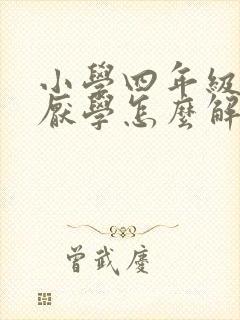 小學四年級
厭學怎麼解
曾武慶